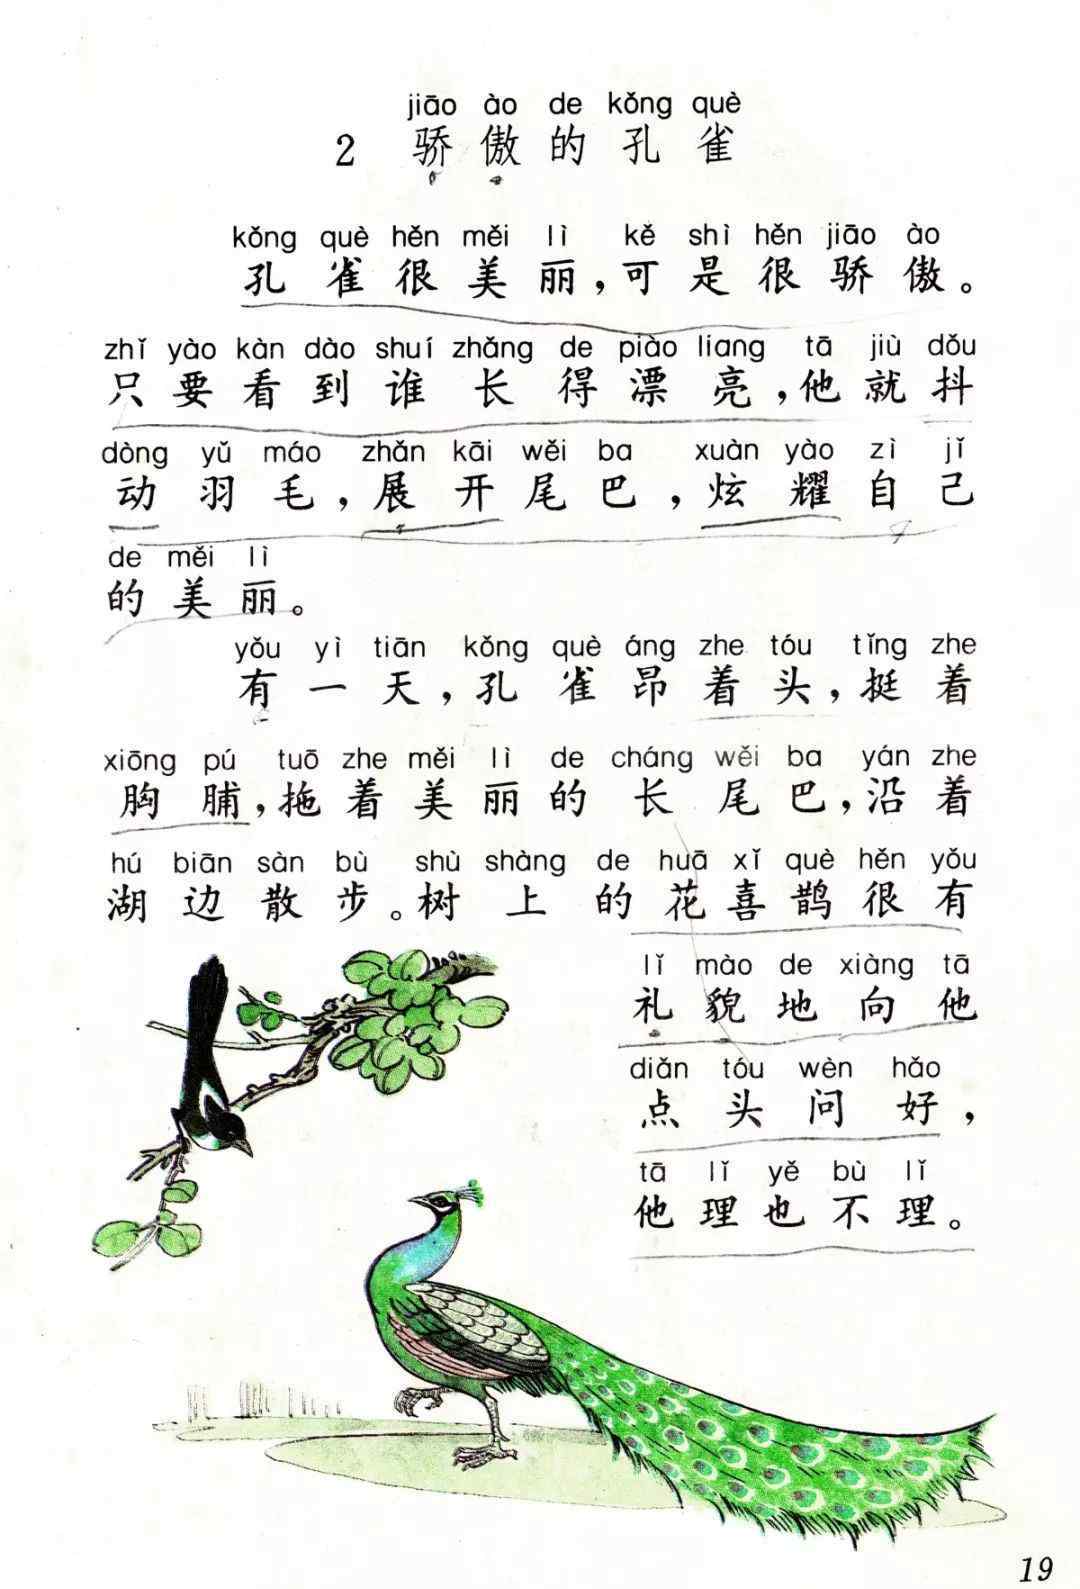 jiāo ào de kǒng què
2 骄傲的孔雀
kǒng què hěn měi lì kě shì hěn jiāo ào
孔雀很美丽，可是很骄傲。
zhǐ yào kàn dào shuí zhǎng de piào liang tā jiù dǒu
只要看到谁长得漂亮，他就抖
dòng yǔ máo zhǎn kāi wěi ba xuàn yào zì jǐ
动羽毛，展开尾巴，炫耀自己
de měi lì
的美丽。
yǒu yì tiān kǒng què áng zhe tóu tǐng zhe
有一天，孔雀昂着头，挺着
xiōng pú tuō zhe měi lì de cháng wěi ba yán zhe
胸脯，拖着美丽的长尾巴，沿着
hú biān sàn bù shù shàng de huā xǐ què hěn yǒu
湖边散步。树上的花喜鹊很有
lǐ mào de xiàng tā
礼貌地向他
diǎn tóu wèn hǎo
点头问好，
tā lǐ yě bù lǐ
他理也不理。
19